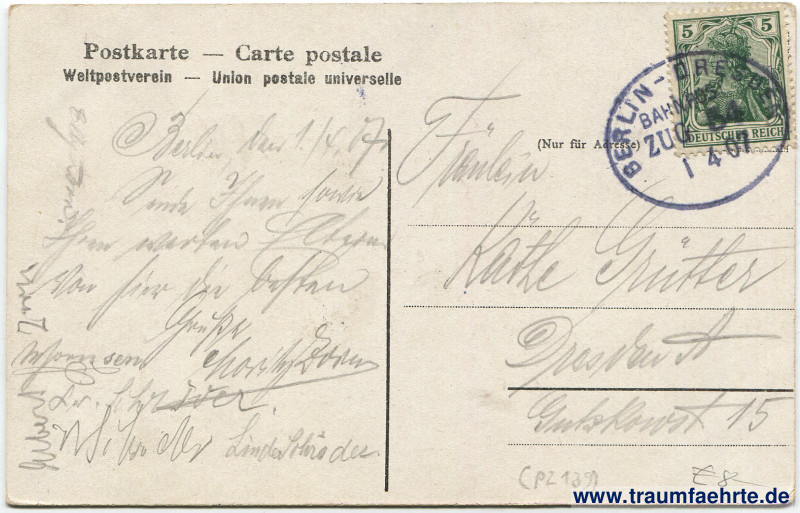 Postkarte — Carte postale
Weltpostverein — Union postale universelle
5 5
DEUTSCHES REICH
BERLIN - DRESDEN
BAHNPOST
ZUG
1 4 07
(Nur für Adresse)
Berlin, den 1./4.07.
Sende Ihnen sowie
Ihren werten Eltern
von hier die besten
Grüße
Moritz Dorn
Linda Schröder.
Fräulein
Käthe Grütter
Dresden A
Gutzkowst 15
(PZ 139)
www.traumfaehrte.de